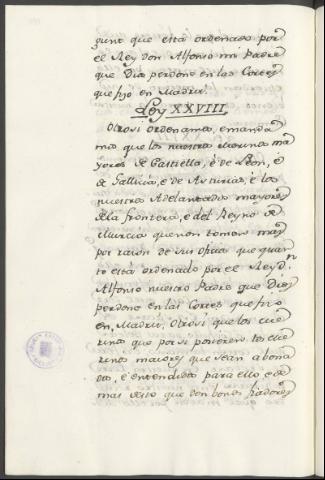 gunt que está ordenado por
el Rey don Alfonso mi Padre
que Dios perdone en las Cortes
que fizo en Madrid.
Ley XXVIII.
Otrosi ordenamos, e manda
mos que los nuestros Merinos ma
yores de Castiella, è de Leon, è
de Gallicia, e de Asturias, e los
nuestros Adelantados mayores
de la frontera, e del Reyno de
Murcia que non tomen mas
por razon de sus oficios que quan
to está ordenado por el Rey Dn
Alfonso nuestro Padre que Dios
perdone en las Cortes que fizo
en Madrid, Otrosi que los me
rinos que por si posieren los me
rinos maiores que sean abona
dos, è entendidos para ello, e de
mas desto que den bonos fiadores